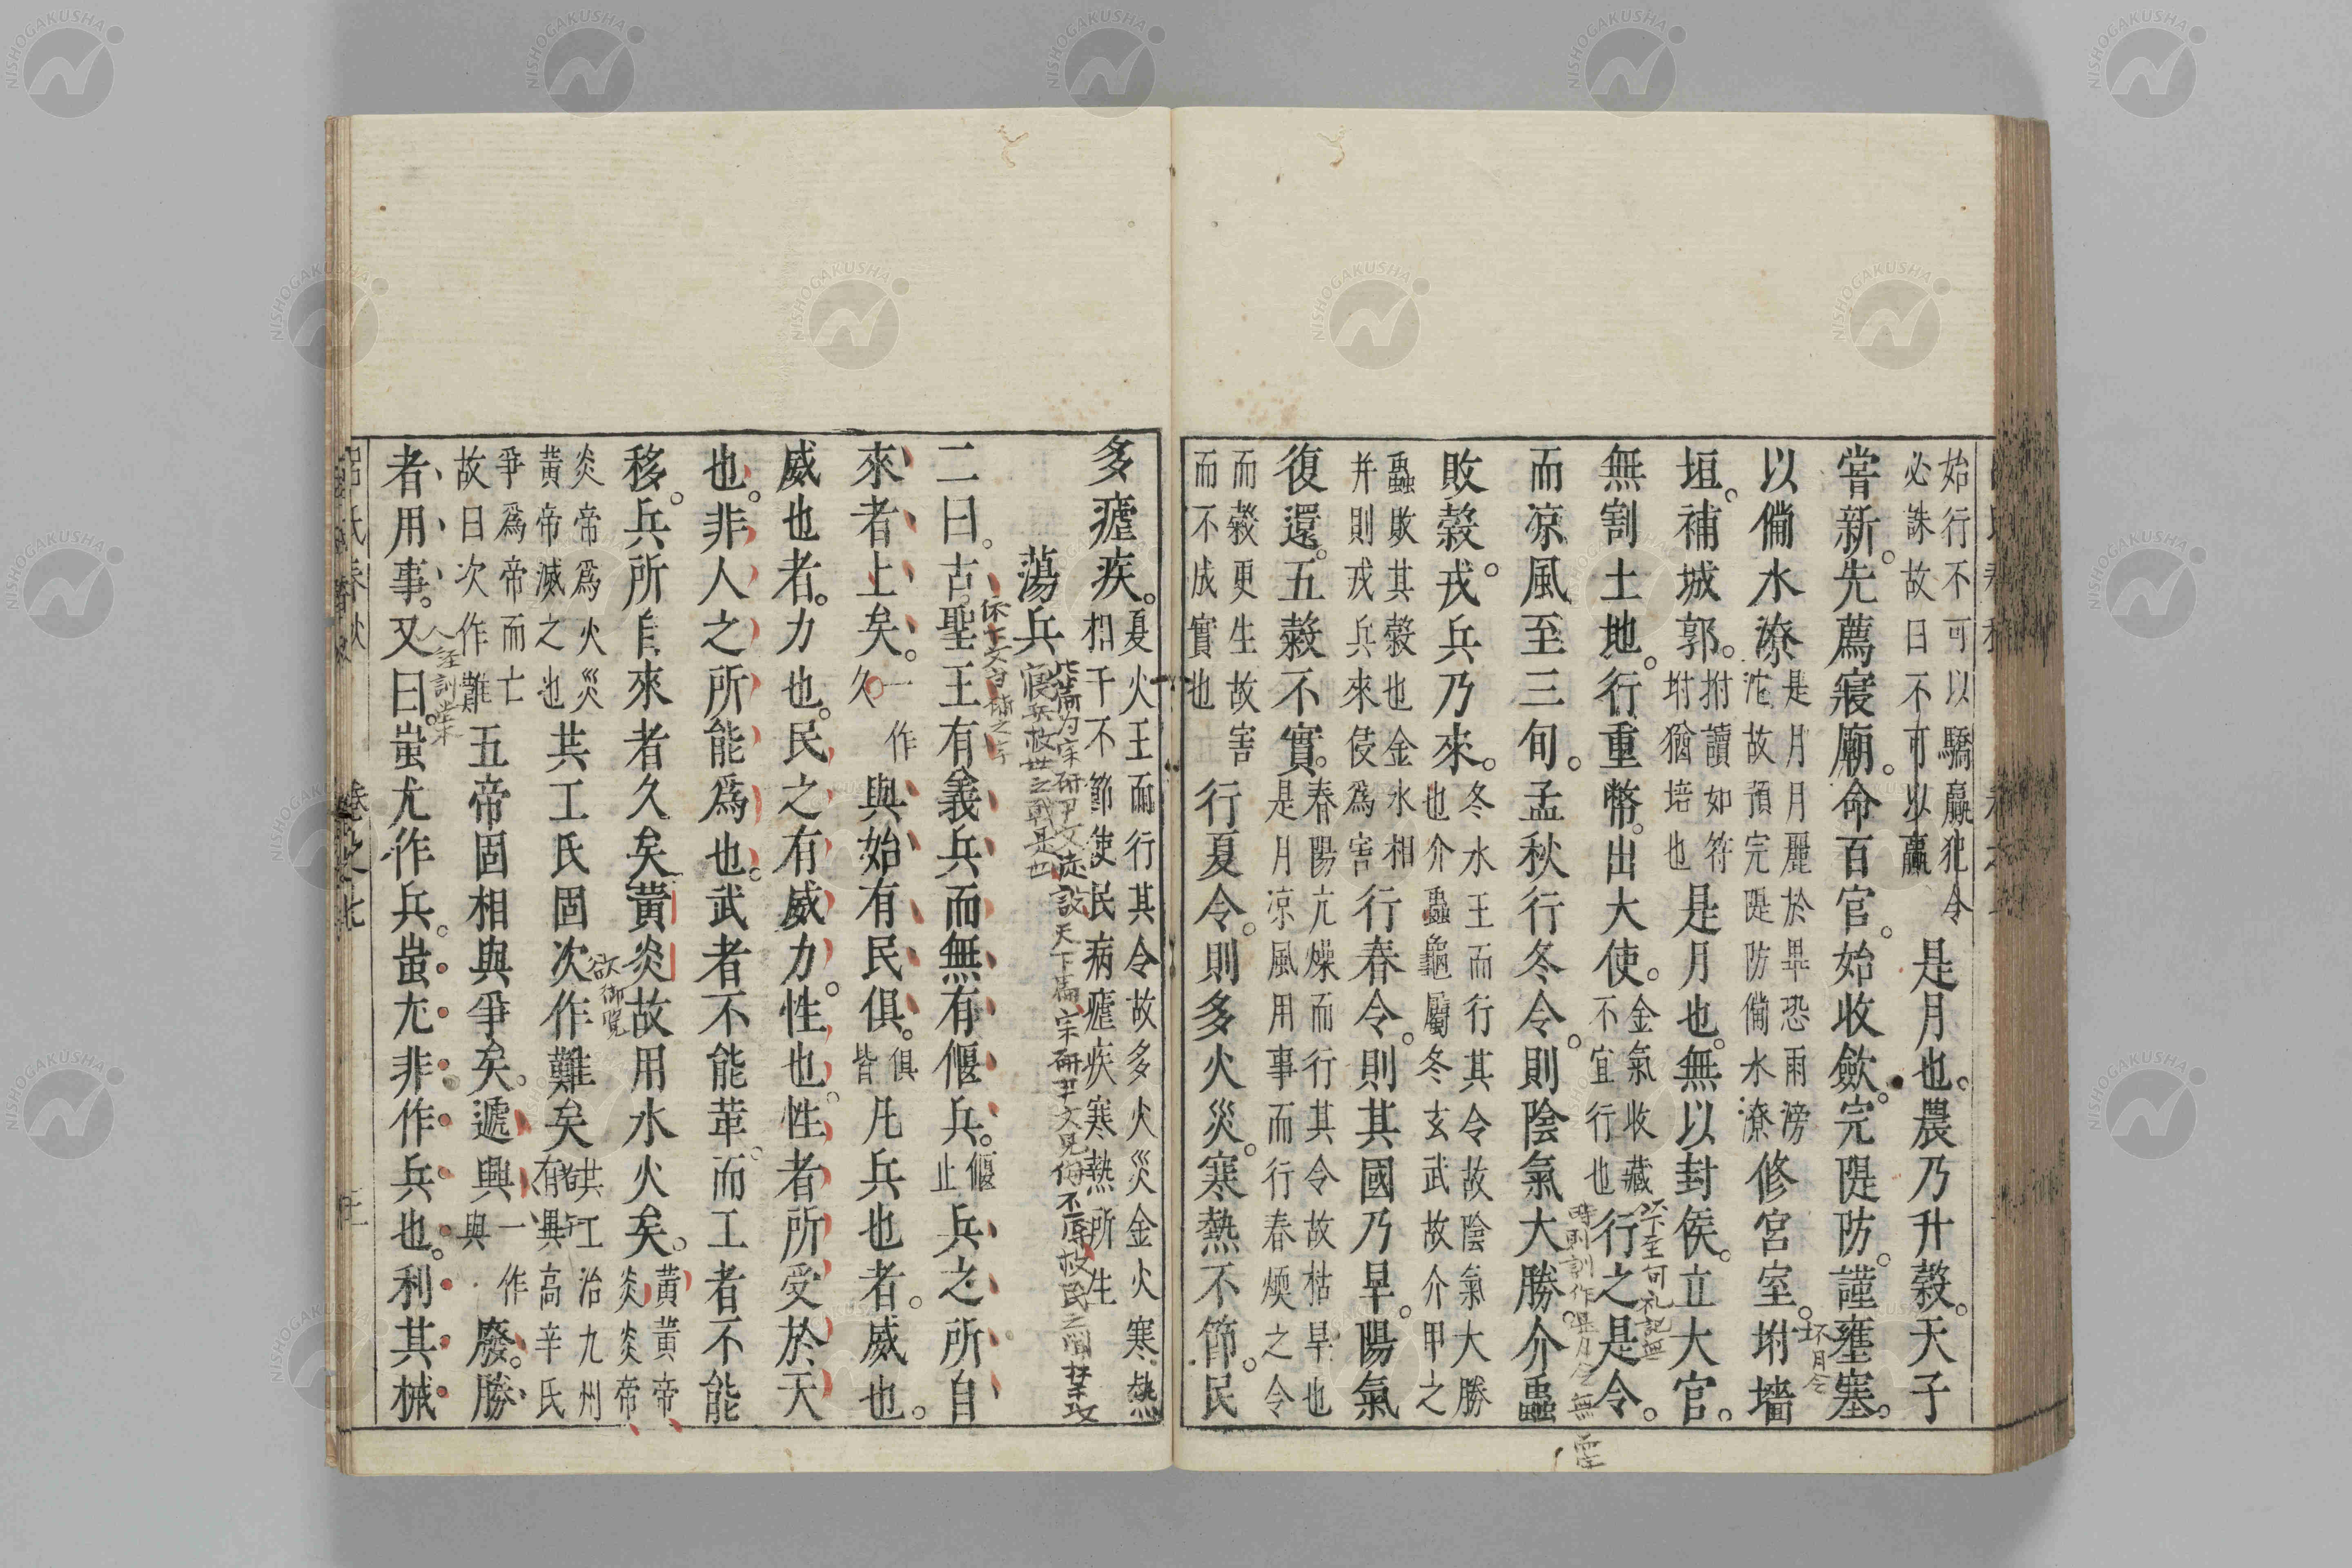 始行不可以驕贏犯令
必誅故曰不可以贏
是月也。農乃升穀。天子
嘗新。先薦寢廟。命百官。始收斂。完隄防。謹壅塞。
以備水潦
是月月麗於畢恐雨滂
沱故預完隄防備水潦
修宮室。坿墻
坏月令
垣。補城郭。
拊讀如符
坿猶培也
是月也。無以封侯。立大官。
無割土地。行重幣。出大使。
金氣收藏
不宜行也
行之是令。
而凉風至三旬。孟秋行冬令。則陰氣大勝。介蟲
敗穀。戎兵乃來。
冬水王而行其令故陰氣大勝
也介蟲龜屬冬玄武故介甲之
蟲敗其穀也金水相
并則戎兵來侵爲害
行春令。則其國乃旱。陽氣
復還。五穀不實。
春陽亢燥而行其令故枯旱也
是月凉風用事而行春煗之令
而穀更生故害
而不成實也
行夏令。則多火災。寒熱不節。民
多瘧疾。
夏火王而行其令故多火災金火寒熱
相干不節使民病瘧疾寒熱所生
蕩兵
二曰。古聖王有義兵而無有偃兵。
偃
止
兵之所自
來者上矣。
一作
久
與始有民俱。
俱
皆
凡兵也者。威也。
威也者。力也。民之有威力。性也。性者所受於天
也。非人之所能爲也。武者不能革。而工者不能
移。兵所自來者久矣黃炎故用水火矣。
黃黃帝
炎炎帝
炎帝爲火災
黃帝滅之也
共工氏固次作難矣
共工治九州
有異高辛氏
欲御覽
爭爲帝而亡
故曰次作難
五帝固相與爭矣。遞興
一作
與
廢。勝
者用事。又曰。蚩尤作兵。蚩尤非作兵也。利其械
呂氏春秋
卷之七